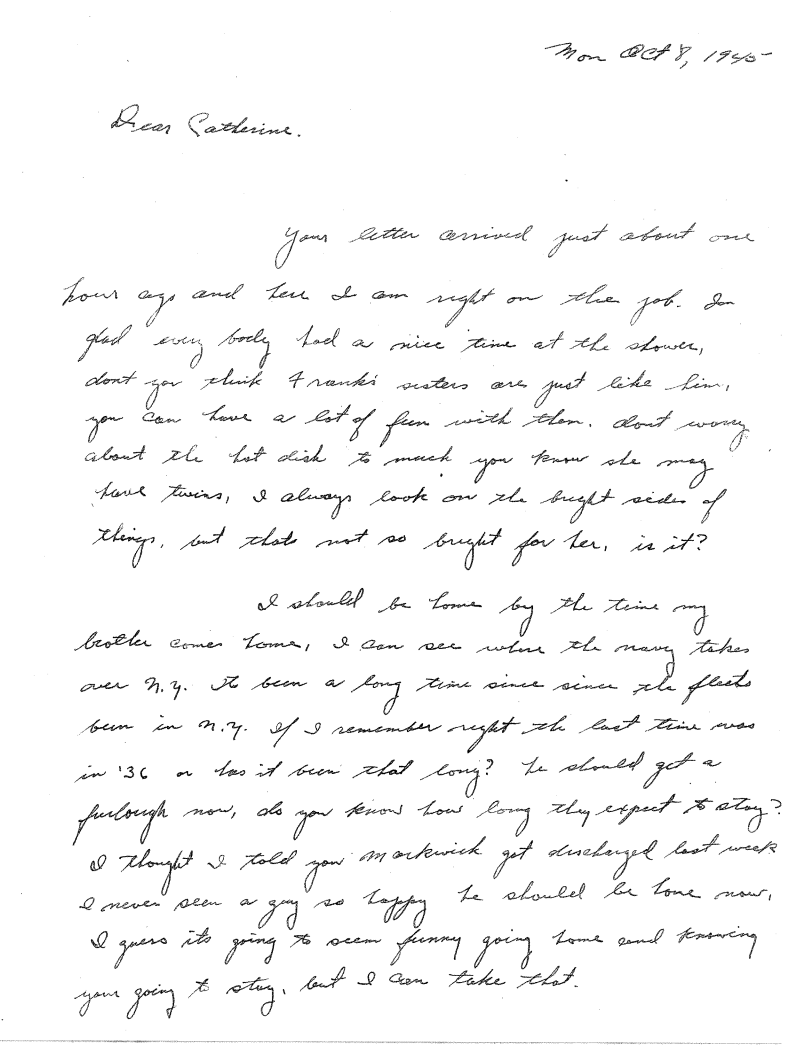 Mon Oct 8, 1945
Dear Catherine.
Your letter arrived just about one
hour ago and here I am right on the job. Im
glad every body had a nice time at the shower,
dont you think Franks sisters are just like him,
you can have a lot of fun with them. dont worry
about the hot dish to much you know she may
have twins, I always look on the bright sides of
things, but thats not so bright for her, is it?
I should be home by the time my
brother comes home, I can see where the navy takes
over N.Y. It been a long time since since the fleets
been in N.Y. If I remember right the last time was
in '36 or has it been that long? he should get a
furlough now, do you know how long they expect to stay?
I thought I told you Markwick got discharged last week
I never seen a guy so happy he should be home now,
I guess its going to seem funny going home and knowing
your going to stay, but I can take that.